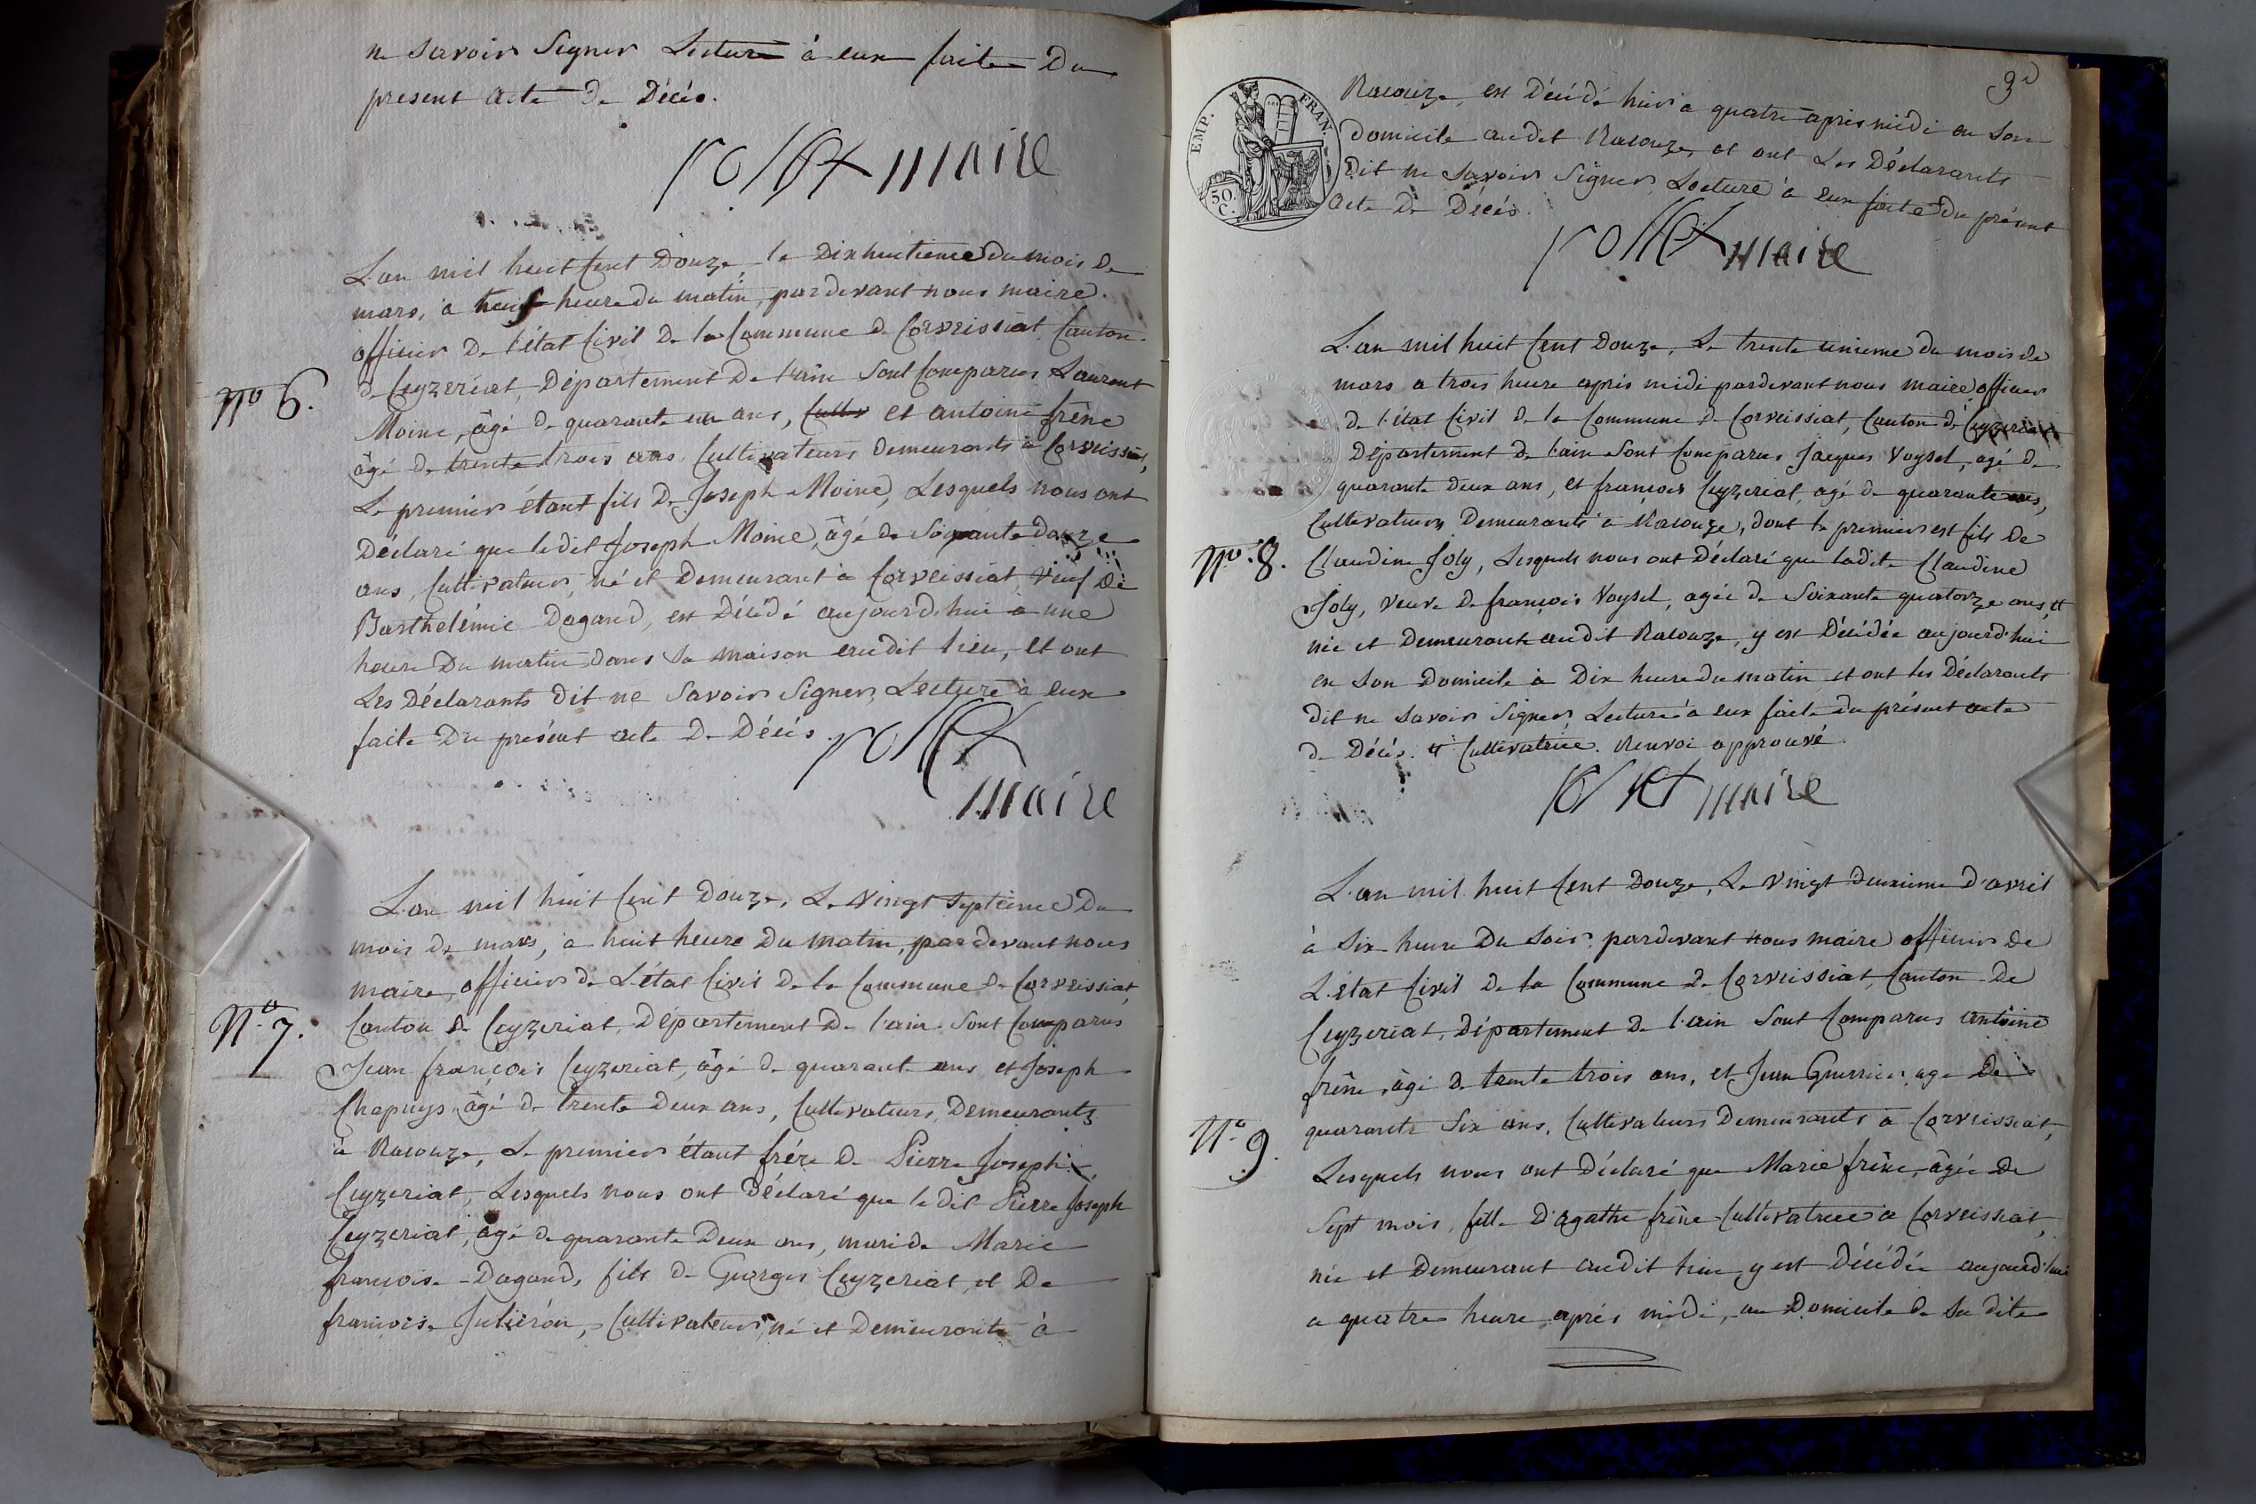 ne savoir signer Lecture à eux faite du
present acte de Décés.
maire
L'an mil huit cent Douze le Dixhuitieme du mois de
mars, a heure du matin, pardevant nous maire
officier De l'état Civil De la Commune de Corveissiat, Canton
de Ceyzeriat, Département De l'ain sont Comparus Laurent
Nº 6.
Moine, âgé de quarante un ans, et antoine frêne
âgé de trente trois ans Cultivateurs demeurants à Corveissiat,
Le premier étant fils De Joseph Moine, Lesquels nous ont
Déclaré que le dit Joseph Moine, âgé de Soixante Douze
ans, Cultivateur, né et Demeurant à Corveissiat, Veuf de
Barthelémie Dagand, est Décédé aujourd'hui a une
heure Du matin dans sa maison audit lieu, et ont
Les Déclarants dit ne savoir signer, Lecture à eux
faite Du présent acte De Décés.
maire
L'an mil huit cent Douze, Le vingt septieme Du
mois de mars, à huit heure Du matin, pardevant nous
maire, officier de L'état Civil De la Commune de Corveissiat,
Nº 7.
Canton de Ceyzeriat, Département De l'ain sont Comparus
Jean françois Ceyzeriat, âgé de quarant ans et Joseph
Chapuys âgé de trente deux ans, Cultivateurs, Demeurants
à Racouze, Le premier étant frére de Pierre Joseph
Ceyzeriat, Lesquels nous ont Déclaré que le dit Pierre Joseph
Ceyzeriat, agé de quarante deux ans, mari de Marie
françoise Dagand, fils de Georges Ceyzeriat, et De
françoise Cultivateur, né et Demeurante à
3e
EMP. FRAN.
50 C.
Racouze, est Décédé hier a quatre aprés midi en son
domicile audit Racouze, et ont Les Déclarants
Dit ne savoir signer Lecture à eux faite du présent
acte De Décés.
maire
L'an mil huit cent Douze, Le trente unieme du mois de
mars a trois heure aprés midi pardevant nous maire officier
de l'état Civil de la Commune de Corveissiat, Canton de Ceyzeriat
Département De l'ain sont Comparus Jacques Voysel, agé de
quarante deux ans, et françois Ceyzeriat, agé de quarante ans,
Cultivateurs Demeurants à Racouze, dont le premier est fils De
Nº 8.
Claudine Joly, Lesquels nous ont Déclaré que ladite Claudine
Joly, veuve de françois Voysel, agée de Soixante quatorze ans, #
née et Demeurante audit Racouze, y est Décédée aujourd'hui
en son Domicile à Dix heure du matin et ont les Déclarants
dit ne savoir signer, Lecture à eux faite Du présent acte
de Décés. # Cultivatrice. Renvoi approuvé.
maire
L'an mil huit cent Douze, Le vingt deuxieme d'avril
à Six heure Du soir, pardevant nous maire officier De
L'état Civil De la Commune de Corveissiat, Canton De
Ceyzeriat, Département De l'ain sont Comparus antoine
frêne, âgé De trente trois ans, et Jean Guerrier, agé De
Nº 9.
quarante Six ans, Cultivateurs Demeurants à Corveissiat,
Lesquels nous ont Déclaré que Marie frêne, âgée De
Sept mois, fille D'agathe frêne Cultivatrice à Corveissiat,
née et Demeurant audit lieu y est Décédée aujourd'hui
a quatre heure aprés midi, au Domicile de sa dite